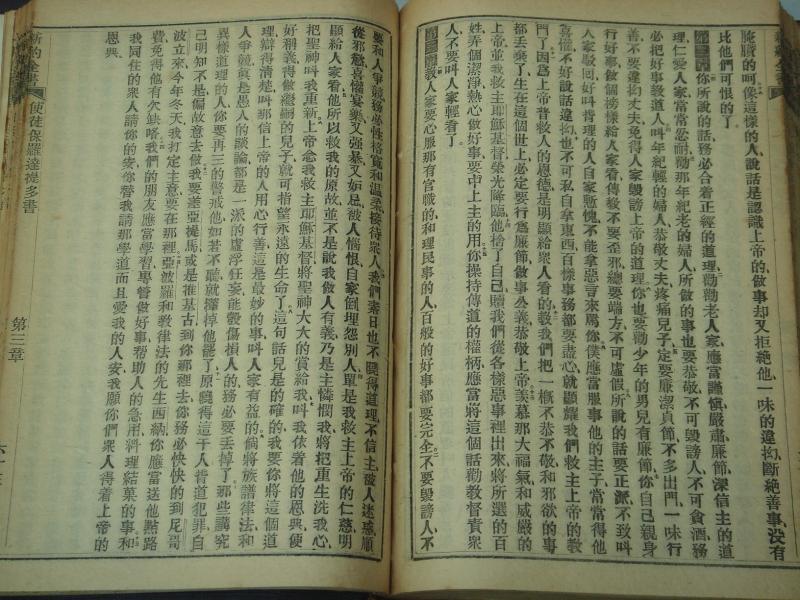 腌臢的呵像這樣的人說話是認識上帝的做事却又拒絶他一味的違拗斷絶善事没有
比他們可恨的了
第二章你所說的話務必合着正經的道理勸勸老人家應當謹慎嚴肅廉節深信主的道
理仁愛人家當當忍耐勸那年紀老的婦人所做的事也要恭敬不可毁謗人不可貪酒務
必把好事教道人叫年紀輕的婦人恭敬丈夫疼痛兒子定要廉潔貞節不多出門一味行
善不要違拗丈夫免得人家毁謗上帝的道理你也要勸少年的男兒有廉節你自己親身
行好事做個榜樣給人家看傳教不要歪邪總要端方不可虚假所說的話要正派不致叫
人家駁回好叫背理的人自家慙愧不能拿惡言來罵你僕應當服事他的主子當當得他
喜懽不好說話違拗也不可私自拿東西百樣事務都要盡心就顯耀我們救主上帝的教
門了因爲上帝普救人的恩德是明顯給衆人看的教我們把一槪不恭不敬和邪欲的事
都丟棄了生在這個世上必定要行爲廉節做事公義恭敬上帝羨慕那大福氣和威嚴的
上帝並我救主耶穌基督榮光降臨他捨了自己贖我們從各樣惡事裡出來將所選的百
姓弄個潔淨熱心做好事要中上主的用你操持傳道的權柄應當將這個話勸教督責衆
人不要叫人家輕看了
第三章教人家要心服那有官職的和理民事的人百般的好事都要完全不要毁謗人不
要和人爭競務必性格寬和温柔接待衆人我們素日也不曉得道理不信主被人迷惑順
從邪慾喜懽宴樂又强暴又妬忌被人惱恨自家倒埋怨別人單是我救主上帝的仁慈明
顯給人家看他所以救我的原故並不是說我做人有義乃是主憐憫我將把重生洗我心
把聖神叫我重新上帝念我救主耶穌基督將聖神大大的賞給我叫我依着他的恩典便
好稱義得做繼嗣的兒子就可指望永遠的生命了這句話兒是的確的我要你將這個道
理辯得清楚叫那信上帝的人用心行善這是最妙的事叫人家有益的倘將族譜律法和
人爭競眞是愚人的談論都是一派的虛浮狂妄能彀傷損人的務必要丢掉了那些講究
異樣道理的人你要再三的警戒他如若不聽就撵掉他罷了原曉得這干人背道犯罪自
己明知不是偏故意去做我要差亞提馬或是推基古到你那裡去你務必快快的到尼哥
波立來今年冬天我打定主意要在那裡亞波羅和教律法的先生西納你應當送他點路
費免得他有欠缺咯我們的朋友應當學習專管做好事帮助人的急用料理結菓的事和
我同住的衆人請你的安你替我請那學道而且愛我的人安我願你們衆人得着上帝的
恩典
新約全書
使徒保羅達提多書
第三章